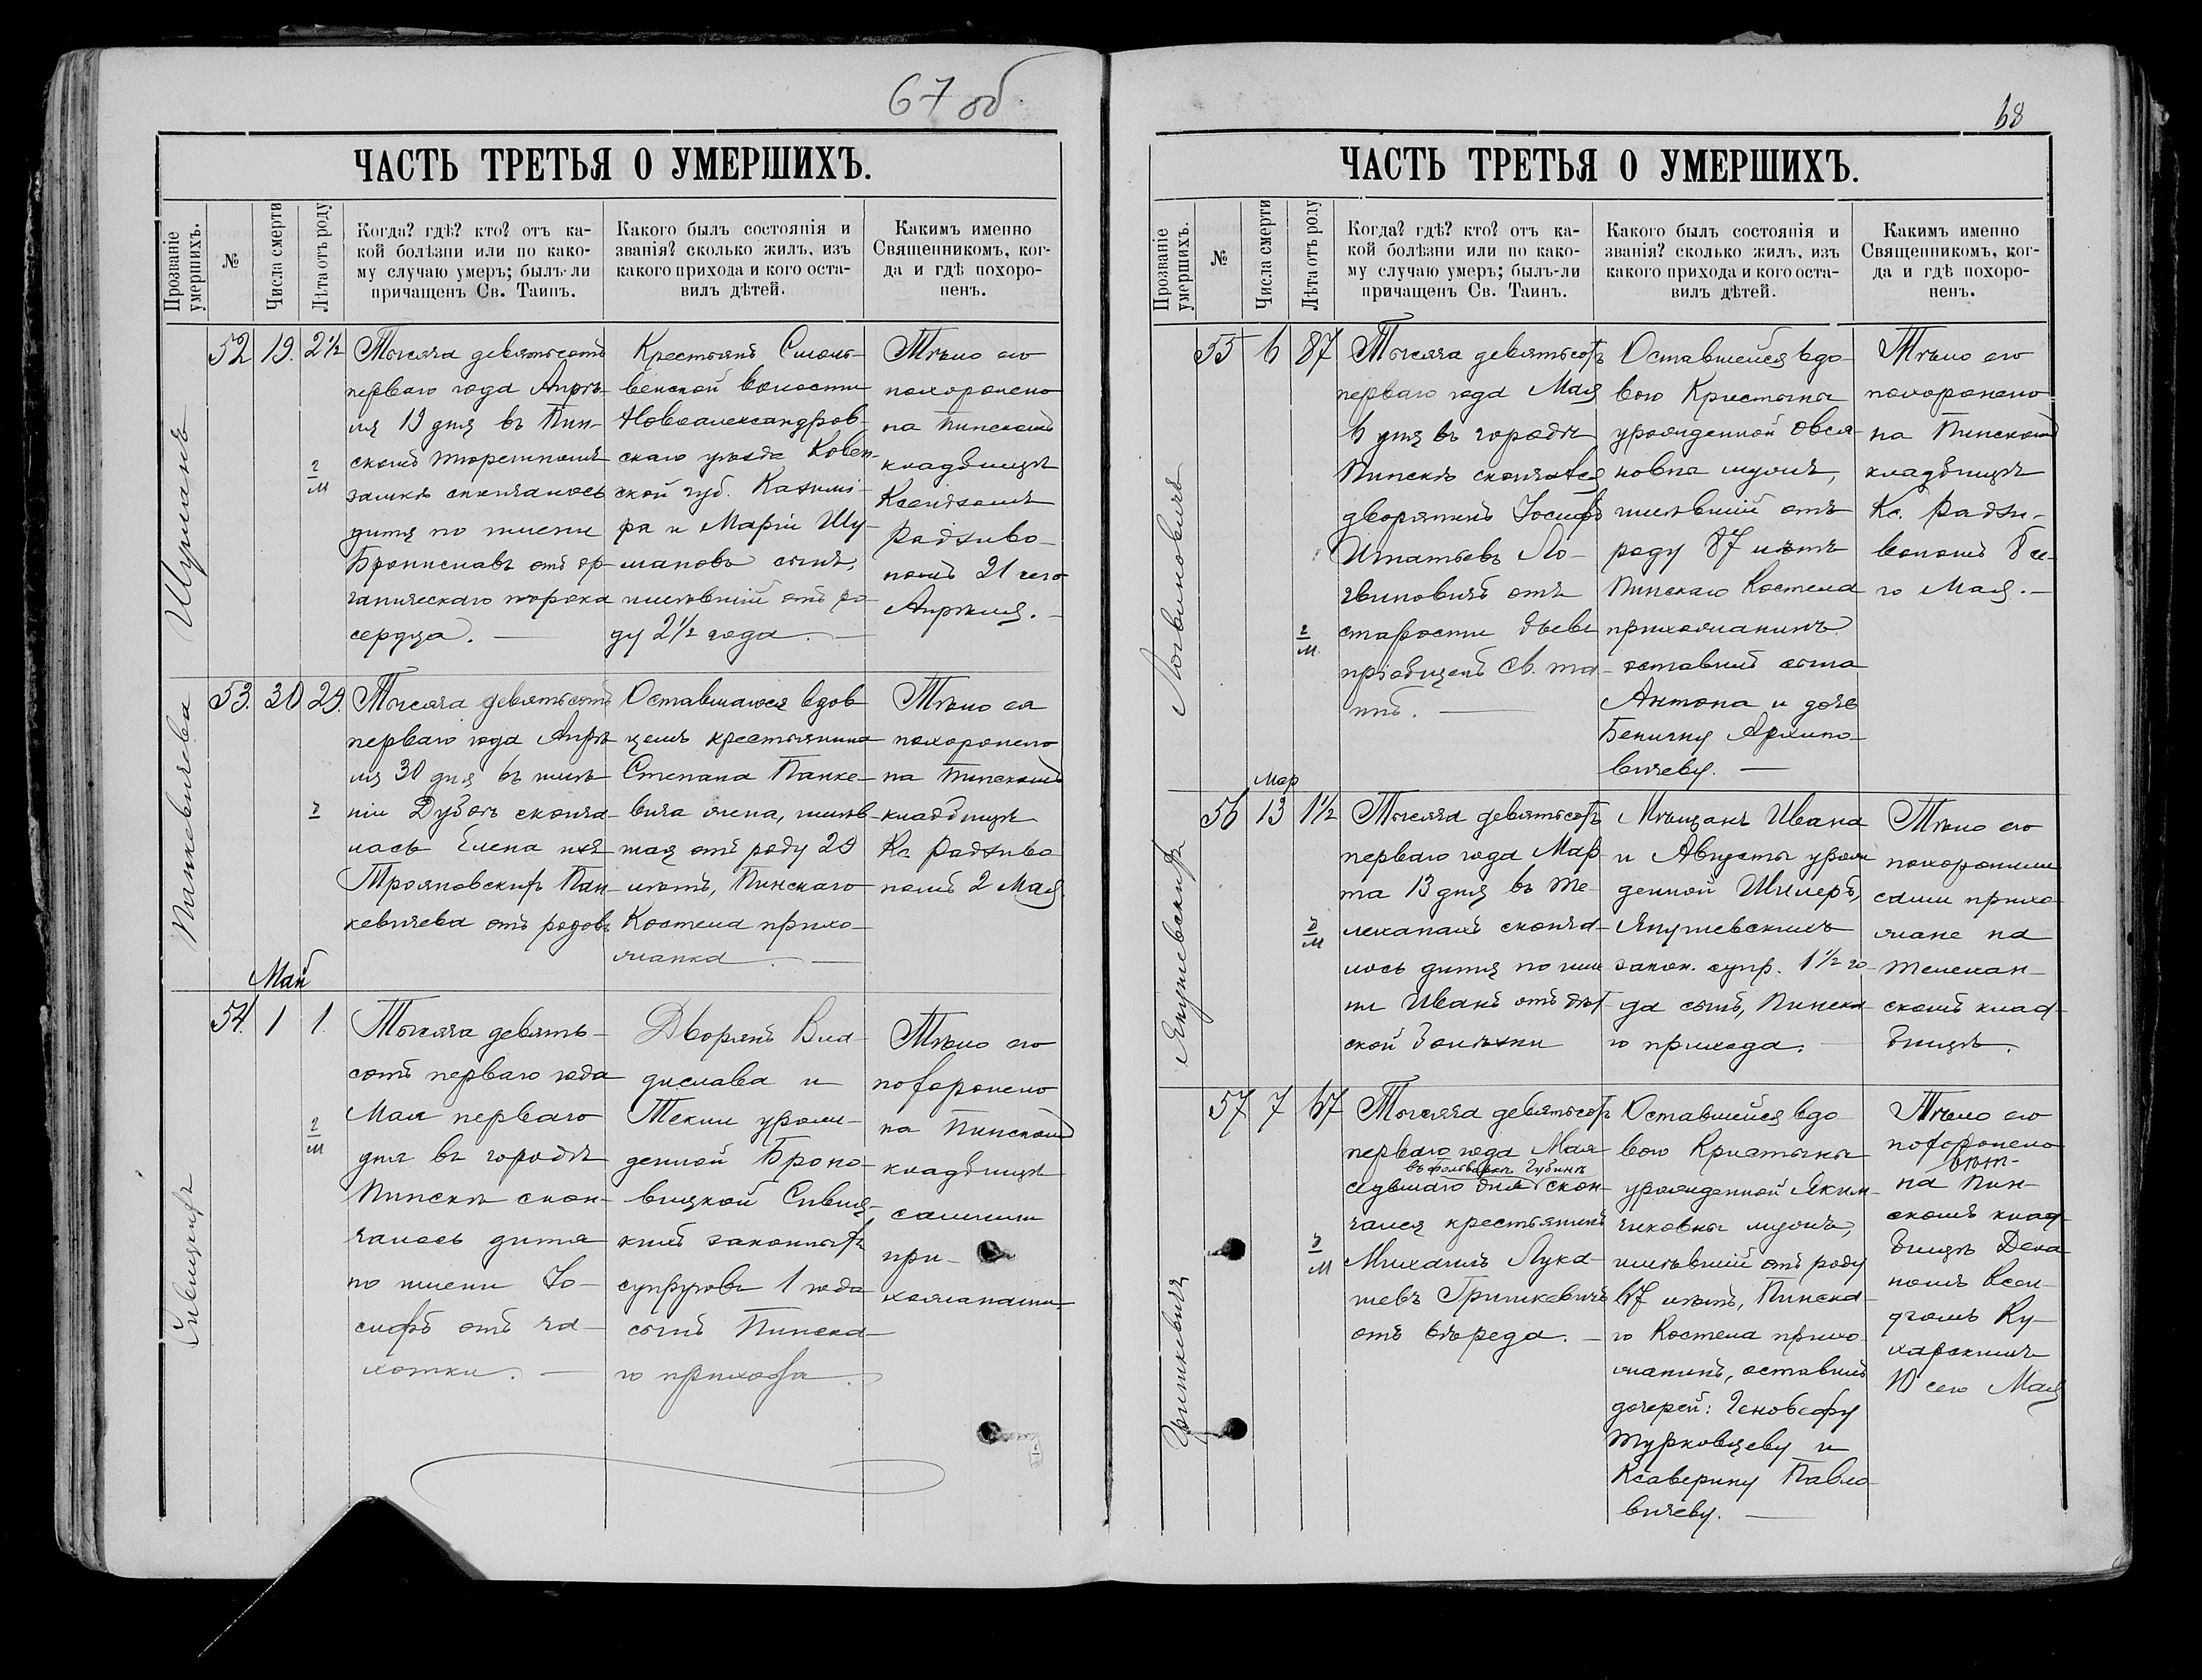 67 об
ЧАСТЬ ТРЕТЬЯ О УМЕРШИХЪ.
Прозваніе умершихъ.
№
Числа смерти
Лѣта отъ роду
Когда? гдѣ? кто? отъ ка-
кой болѣзни или по како-
му случаю умеръ; былъ-ли
причащенъ Св. Таинъ.
Какого былъ состоянія и
званія? сколько жилъ, изъ
какого прихода и кого оста-
вилъ дѣтей.
Какимъ именно
Священникомъ, ког-
да и гдѣ похоро-
ненъ.
Шуманъ
52
19.
2½
г
м
Тысяча девятьсотъ
перваго года Апрѣ-
ля 19 дня въ Пин-
скомъ тюремномъ
замкѣ скончалось
дитя по имени
Брониславъ отъ ор-
ганическаго порока
сердца. —
Крестьянъ
волости
Новоалександров-
скаго уѣзда Ковен-
ской губ. Казимі-
ра и Маріи Шу-
мановъ сынъ,
имѣвшій отъ ро-
ду 2½ года. —
Тѣло его
похоронено
на Пинскомъ
кладбищѣ
Ксендзомъ
Радзиво-
номъ 21 сего
Апрѣля. —
Панкевичева
53.
30
29.
г
Тысяча девятьсотъ
перваго года Апрѣ
ля 30 дня въ имѣ
ніи Дубой сконча-
лась Елена изъ
Трояновскихъ Пан
кевичева отъ родовъ
Оставшагося вдов
цемъ крестьянина
Степана Панке-
вича жена, имѣв-
шая отъ роду 29
лѣтъ, Пинскаго
Костела прихо-
жанка. —
Тѣло ея
похоронено
на Пинскомъ
кладбищѣ
Кс. Радзиво
номъ 2 Мая.
Май
Сивицкій
54.
1
1.
г
м
Тысяча девять-
сотъ перваго года
Мая перваго
дня въ городѣ
Пинскѣ скон-
чалось дитя
по имени Іо-
сифъ отъ ча-
хотки. —
Дворянъ Вла-
дислава и
Текли урож-
денной Броно-
вицкой
кихъ законныхъ
супруговъ 1 года
сынъ Пинска-
го прихода.
Тѣло его
похоронено
на Пинскомъ
кладбищѣ
самими
при-
хожанами
68
ЧАСТЬ ТРЕТЬЯ О УМЕРШИХЪ.
Прозваніе умершихъ.
№
Числа смерти
Лѣта отъ роду
Когда? гдѣ? кто? отъ ка-
кой болѣзни или по како-
му случаю умеръ; былъ-ли
причащенъ Св. Таинъ.
Какого былъ состоянія и
званія? сколько жилъ, изъ
какого прихода и кого оста-
вилъ дѣтей.
Какимъ именно
Священникомъ, ког-
да и гдѣ похоро-
ненъ.
Логвиновичъ
55
6
87
г
м.
Тысяча девятьсотъ
перваго года Мая
6 дня въ городѣ
Пинскѣ скончался
дворянинъ Іосифъ
Игнатьевъ Ло-
гвиновичъ отъ
старости бывъ
пріобщенъ Св. та-
инъ. —
Оставшейся вдо-
вою Кристины
урожденной Овся-
новны мужъ,
имѣвшій отъ
роду 87 лѣтъ
Пинскаго Костела
прихожанинъ
оставивъ сына
Антона и дочь
Архипо-
вичеву. —
Тѣло его
похоронено
на Пинскомъ
кладбищѣ
Кс. Радзи-
вономъ 8 се-
го Мая. —
Мар
Янушевскихъ
56
13
1½
б
м
Тысяча девятьсотъ
перваго года Мар
та 13 дня въ Те-
леханахъ сконча-
лось дитя по име
ни Иванъ отъ дѣт
ской болѣзни
Мѣщанъ Ивана
и Августы урож
денной Шилеръ,
Янушевскихъ
закон. супр. 1½ го-
да сынъ, Пинска
го прихода.
Тѣло его
похоронили
сами прихо
жане на
Телехан-
скомъ клад-
бищѣ.
Гришкевичъ
57
7
67
б
м
Тысяча девятьсотъ
перваго года Мая
въ фольваркѣ Губинѣ
седьмаго дня скон-
чался крестьянинъ
Михаилъ Лука-
шевъ Гришкевичъ
отъ вереда. —
Оставшейся вдо-
вою Кристины
урожденной Яким-
чиковны мужъ,
имѣвшій отъ роду
67 лѣтъ, Пинска-
го Костела прихо
жанинъ, оставивъ
дочерей: Геновефу
Турковцеву и
Ксаверину Павло-
вичеву. —
Тѣло его
похоронено
на Пин-
скомъ клад-
бищѣ Дека
номъ Ксен-
дзомъ Ку-
харскимъ
10 сего Мая